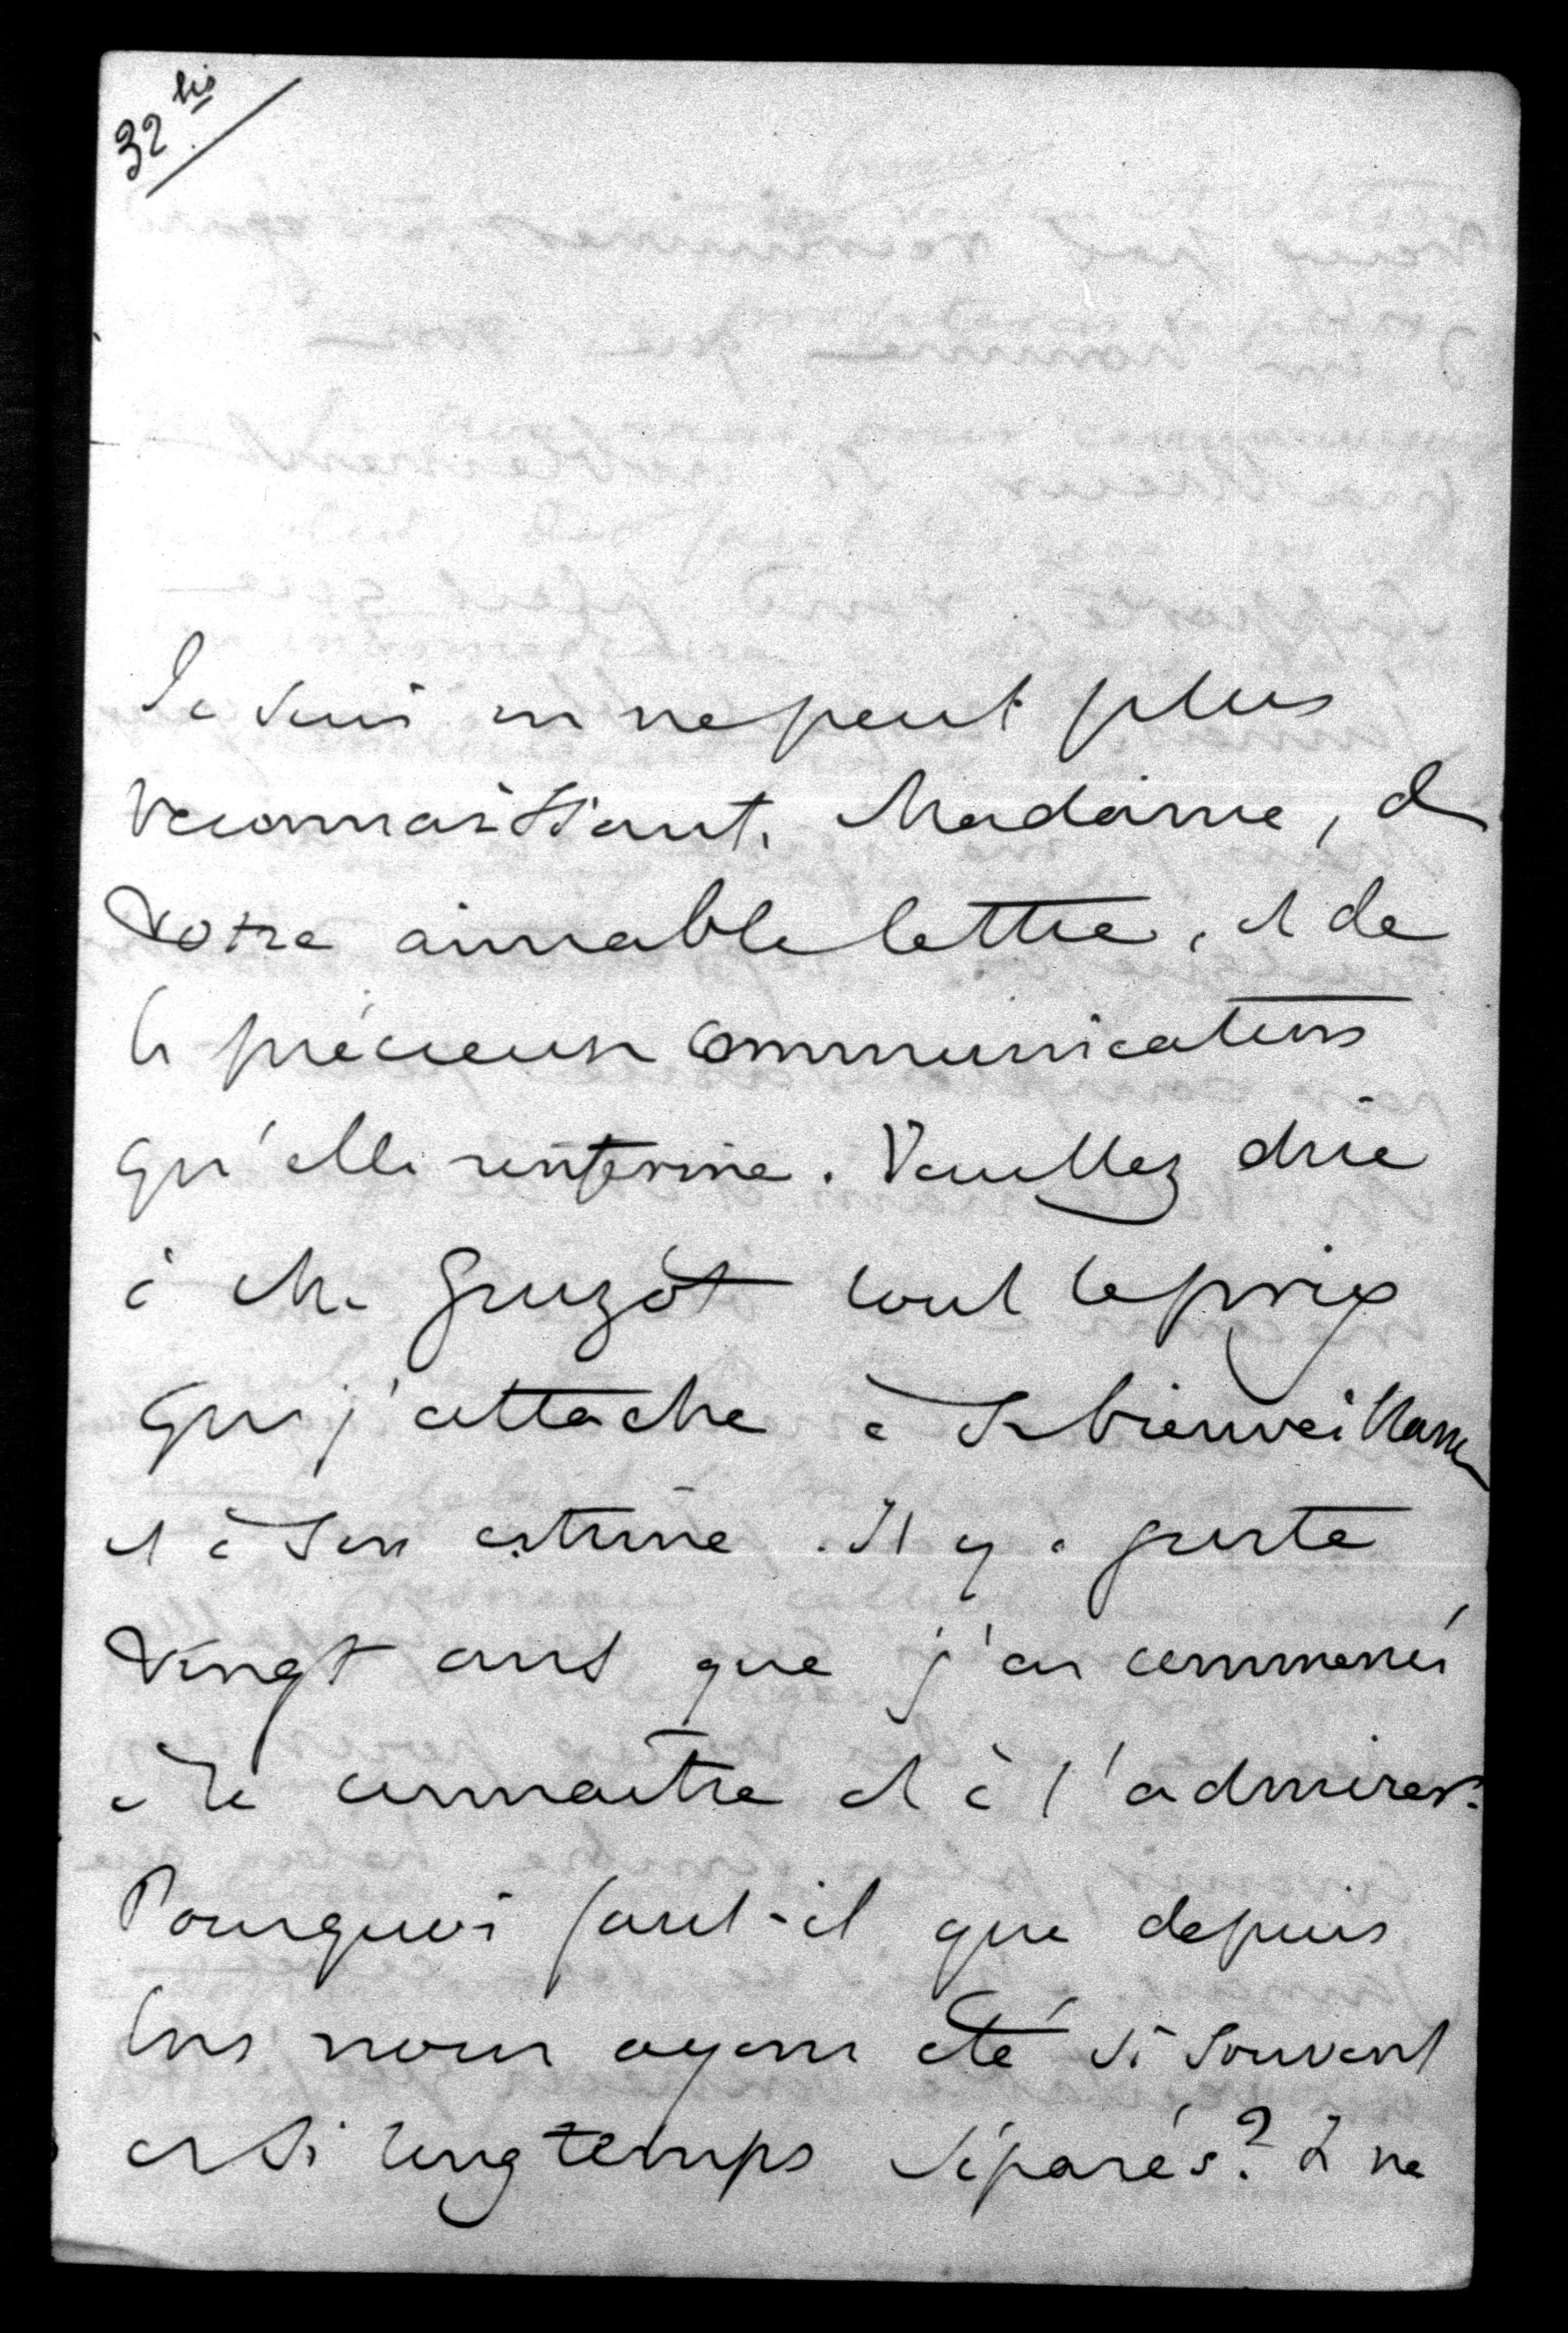 32 bis
Je suis on ne peut plus
reconnaissant, Madame, de
votre aimable lettre, et de
la précieuse communication
qu'elle renferme. Veuillez dire
à M. Guizot tout le prix
que j'attache à sa bienveillance
et à son estime. Il y a juste
vingt ans que j'ai commencé
à le connaître et à l'admirer.
Pourquoi faut-il que depuis
lors nous ayons été si souvent
et si longtemps séparés? Je ne